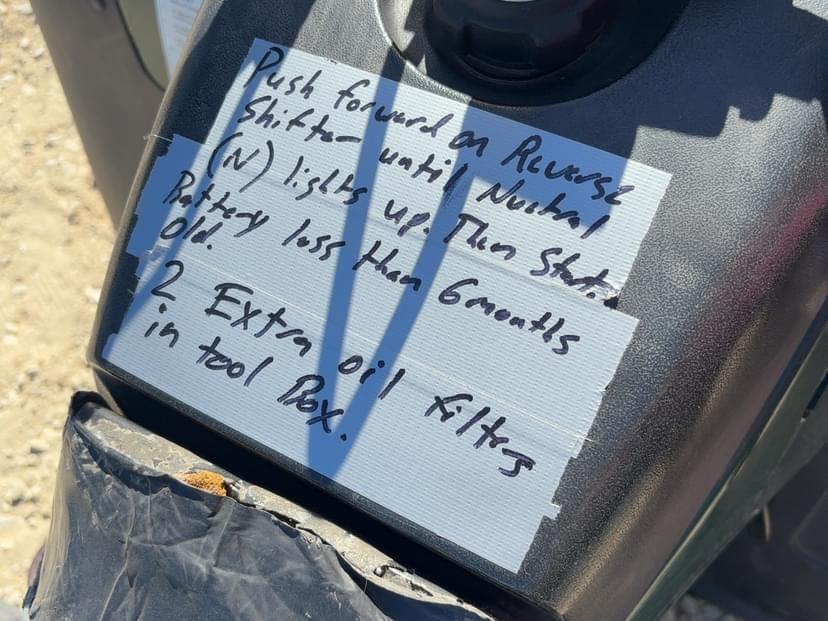 Push forward on Reverse
Shifter until Nuetral
(N) lights up. Then Start.
Battery less than 6 months
Old.
2 Extra oil filters
in tool Box.